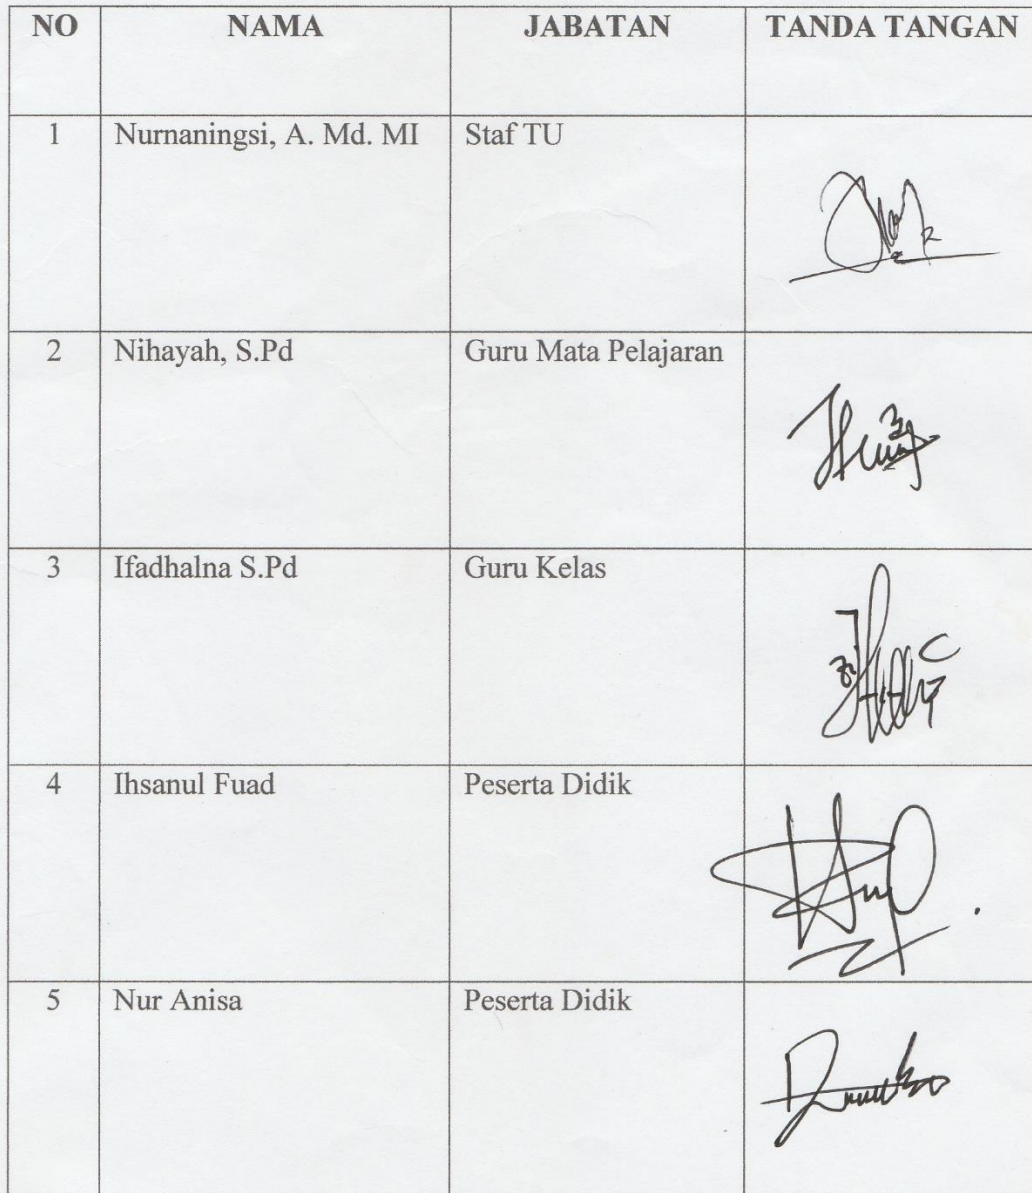 NO NAMA JABATAN TANDA TANGAN
1 Nurnaningsi, A. Md. MI Staf TU
2 Nihayah, S.Pd Guru Mata Pelajaran
3 Ifadhalna S.Pd Guru Kelas
4 Ihsanul Fuad Peserta Didik
5 Nur Anisa Peserta Didik